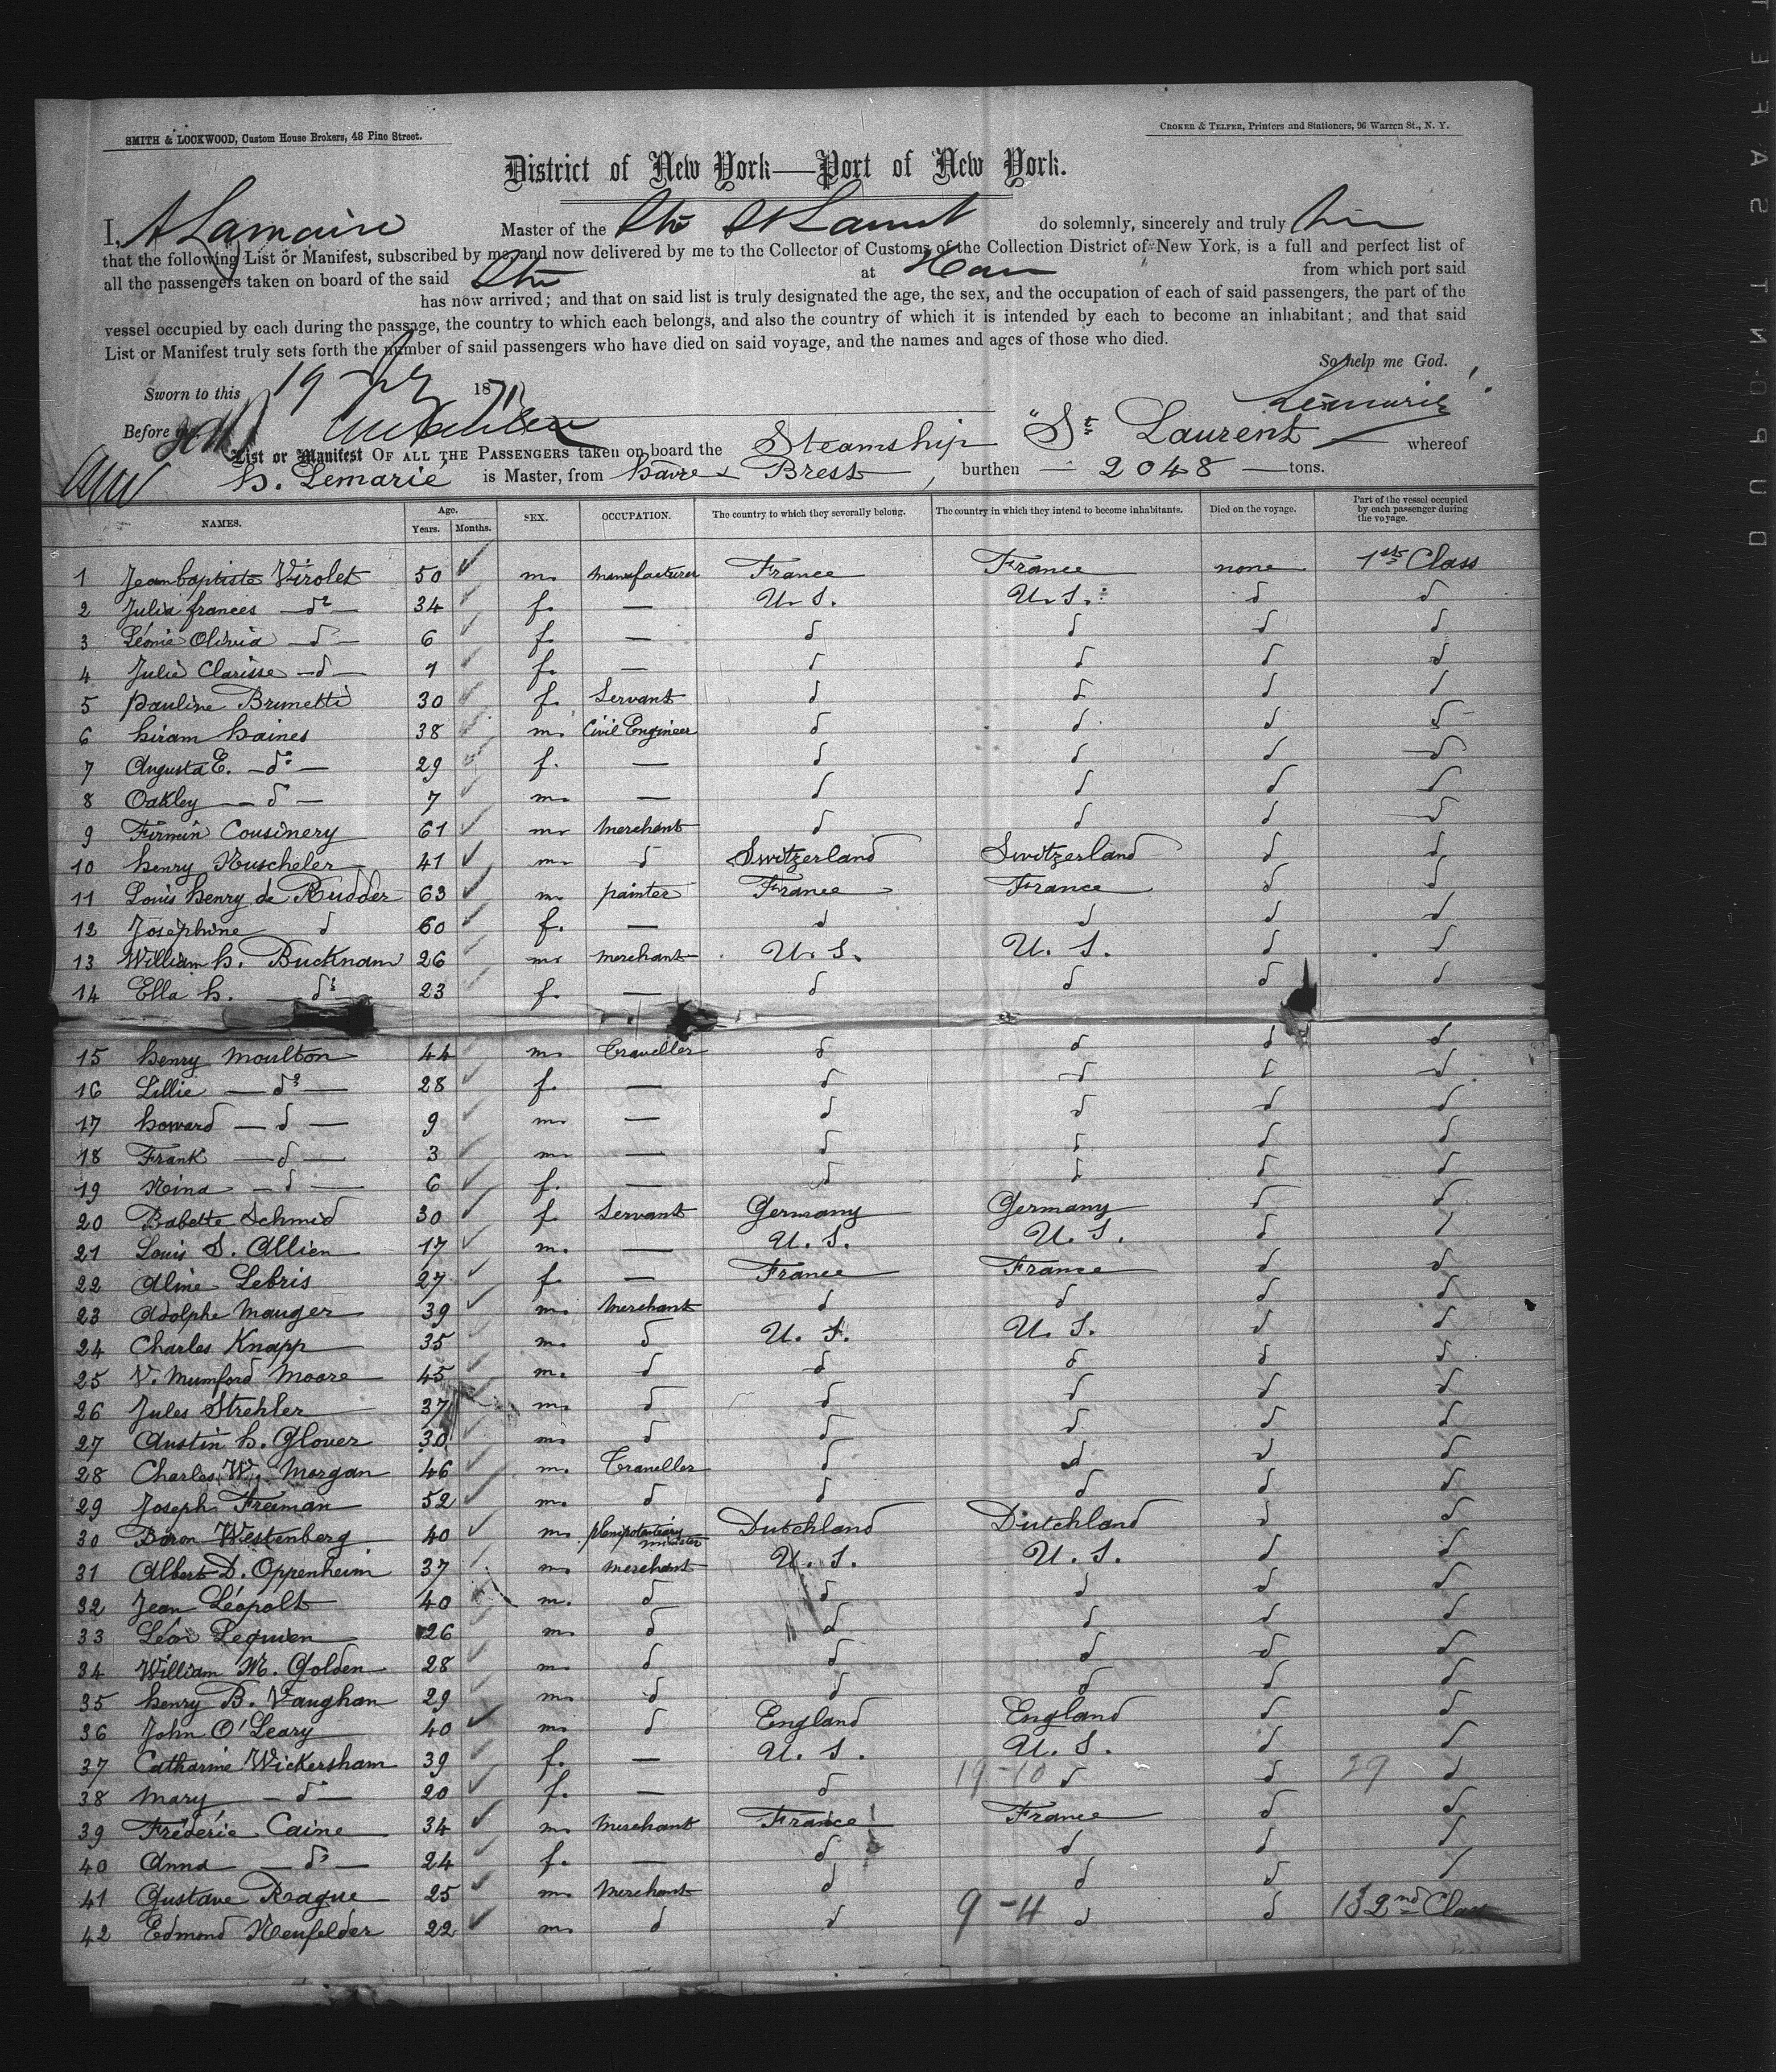 SMITH & LOCKWOOD, Custom House Brokers, 48 Pine Street.
CROKER & TELFER, Printers and Stationers, 96 Warren St., N. Y.
District of New York—Port of New York.
I, Master of the do solemnly, sincerely and truly
that the following List or Manifest, subscribed by me and now delivered by me to the Collector of Customs of the Collection District of New York, is a full and perfect list of
all the passengers taken on board of the said at from which port said
has now arrived; and that on said list is truly designated the age, the sex, and the occupation of each of said passengers, the part of the
vessel occupied by each during the passage, the country to which each belongs, and also the country of which it is intended by each to become an inhabitant; and that said
List or Manifest truly sets forth the number of said passengers who have died on said voyage, and the names and ages of those who died.
So help me God.
Sworn to this 19 1871
Lemarié
Before me,
List or Manifest OF ALL THE PASSENGERS taken on board the Steamship "St Laurent whereof
H. Lemarié is Master, from havre & Brest, burthen — 2048 — tons.
NAMES. Age. Years. Months. SEX. OCCUPATION. The country to which they severally belong. The country in which they intend to become inhabitants. Died on the voyage. Part of the vessel occupied by each passenger during the voyage.
1 Jean baptiste Virolet 50 m. manufacturer France France none 1st Class
2 Julia frances — do — 34 f. — U. S. U. S. d d
3 Léonie Olivia — d — 6 f. — d d d d
4 Julie Clarisse — d — 1 f. — d d d d
5 pauline Brunetti 30 f. Servant d d d d
6 hiram haines 38 m. Civil Engineer d d d d
7 Augusta E. — do — 29 f. — d d d d
8 Oakley — d — 7 m. — d d d d
9 Firmin Cousinery 61 m. merchant d d d d
10 henry Nuscheler 41 m. d Switzerland Switzerland d d
11 Louis henry de Rudder 63 m. painter France France d d
12 Josephine d 60 f. — d d d d
13 William h. Bucknam 26 m. merchant U. S. U. S. d d
14 Ella h. — do 23 f. — d d d d
15 henry moulton 44 m. Traveller d d d d
16 Lillie — do — 28 f. — d d d d
17 howard — d — 9 m. — d d d d
18 Frank — d — 3 m. — d d d d
19 Nina — d — 6 f. — d d d d
20 Babette Schmid 30 f. Servant Germany Germany d d
21 Louis S. Allien 17 m. — U. S. U. S. d d
22 Aline Lebris 27 f. — France France d d
23 Adolphe mauger 39 m. merchant d d d d
24 Charles Knapp 35 m. d U. S. U. S. d d
25 V. Mumford Moore 45 m. d d d d d
26 Jules Strehler 37 m. d d d d d
27 Austin h. Glover 30 m. d d d d d
28 Charles W. Morgan 46 m. Traveller d d d d
29 Joseph Freiman 52 m. d d d d d
30 Baron Westenberg 40 m. plenipotentiary minister Dutchland Dutchland d d
31 Albert D. Oppenheim 37 m. merchant U. S. U. S. d d
32 Jean Léopolt 40 m. d d d d d
33 Léon Lequien 26 m. d d d d d
34 William M. Golden 28 m. d d d d d
35 henry B. Vaughan 29 m. d d d d d
36 John O'Leary 40 m. d England England d d
37 Catharine Wickersham 39 f. — U. S. U. S. d d
38 mary — do — 20 f. — d 19-10 d d 29 d
39 Fréderic Caine 34 m. Merchant France France d d
40 Anna — do — 24 f. — d d d d
41 Gustave Rague 25 m. Merchant d d d
42 Edmond Neufelder 22 m. d d 9-4 d d 13 2nd Class
DUPONT SAFE